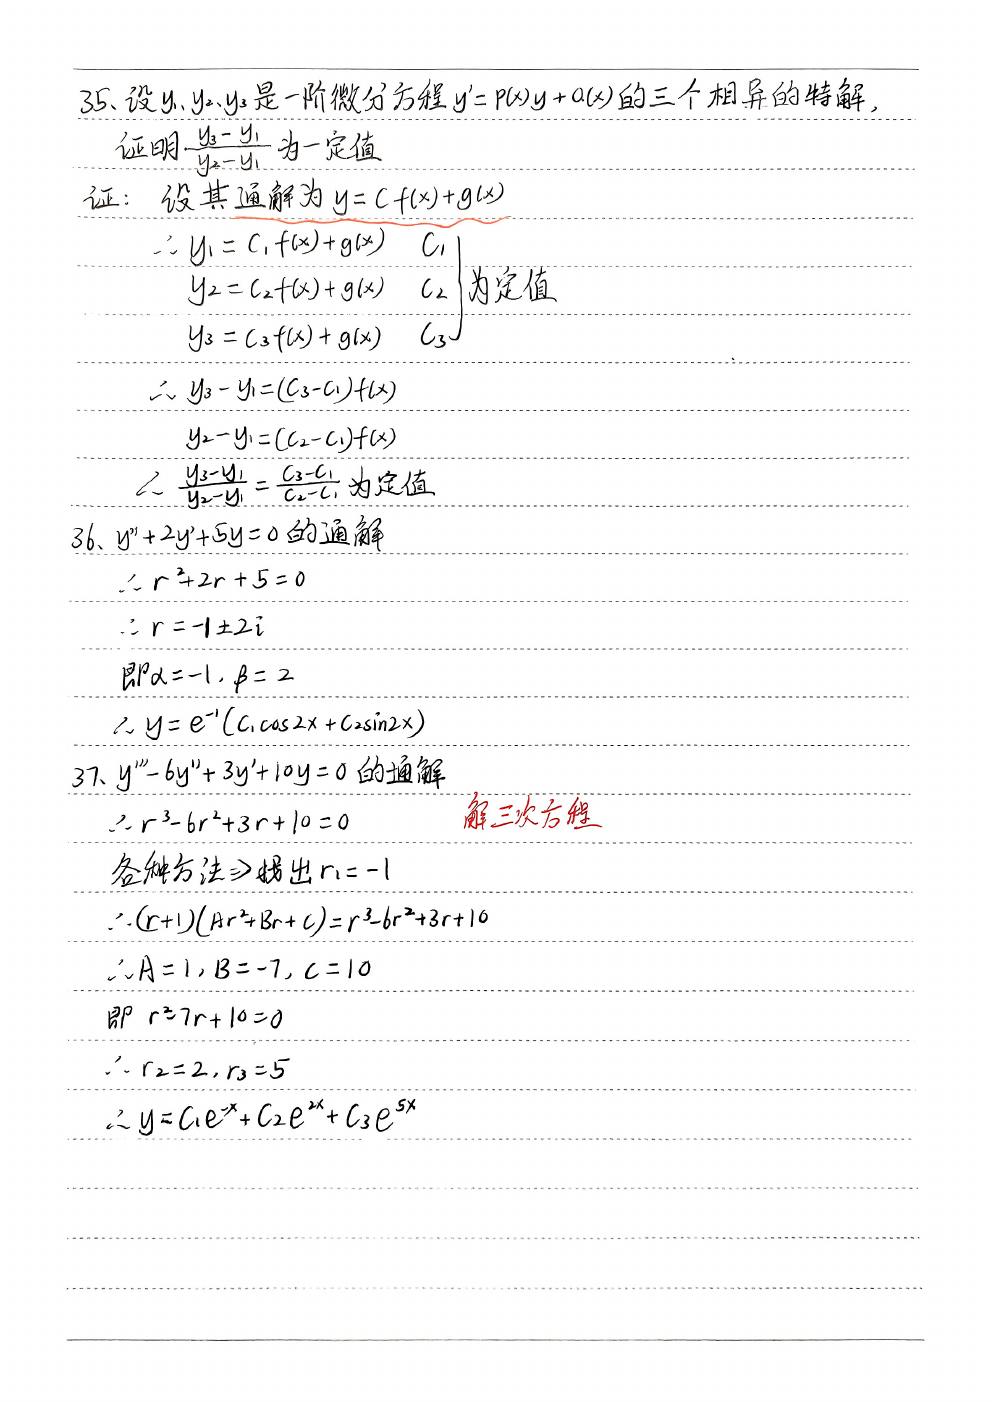 35、设y₁、y₂、y₃是一阶微分方程y'=P(x)y+Q(x)的三个相异的特解,
证明 (y₃-y₁)/(y₂-y₁) 为一定值
证: 设其通解为y=Cf(x)+g(x)
∴ y₁=C₁f(x)+g(x) C₁
y₂=C₂f(x)+g(x) C₂ 为定值
y₃=C₃f(x)+g(x) C₃
∴ y₃-y₁=(C₃-C₁)f(x)
y₂-y₁=(C₂-C₁)f(x)
∴ (y₃-y₁)/(y₂-y₁)=(C₃-C₁)/(C₂-C₁) 为定值
36、y''+2y'+5y=0的通解
∴ r²+2r+5=0
∴ r=-1±2i
即α=-1, β=2
∴ y=e⁻¹(C₁cos2x+C₂sin2x)
37、y'''-6y''+3y'+10y=0的通解
∴ r³-6r²+3r+10=0 解三次方程
各种方法⇒拐出r₁=-1
∴(r+1)(Ar²+Br+C)=r³-6r²+3r+10
∴A=1, B=-7, C=10
即 r²-7r+10=0
∴ r₂=2, r₃=5
∴ y=C₁e⁻ˣ+C₂e²ˣ+C₃e⁵ˣ